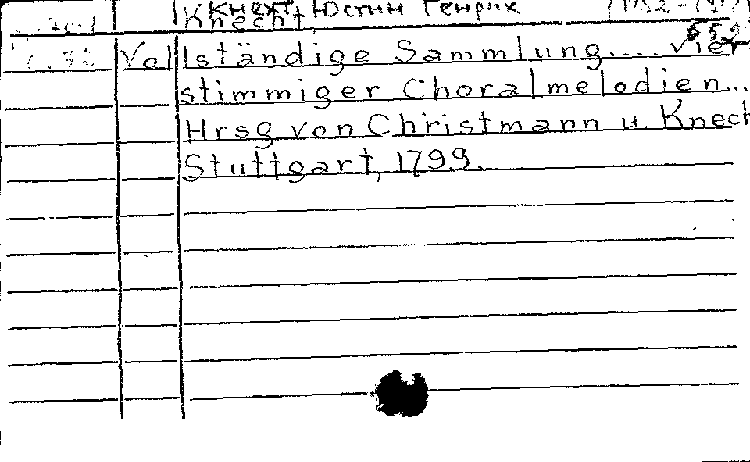 Кнехт, Юстин Генрих (1752-1817)
Knecht,
Vollständige Sammlung.... vier
stimmiger Choralmelodien...
Hrsg von Christmann u. Knech
Stuttgart, 1799.